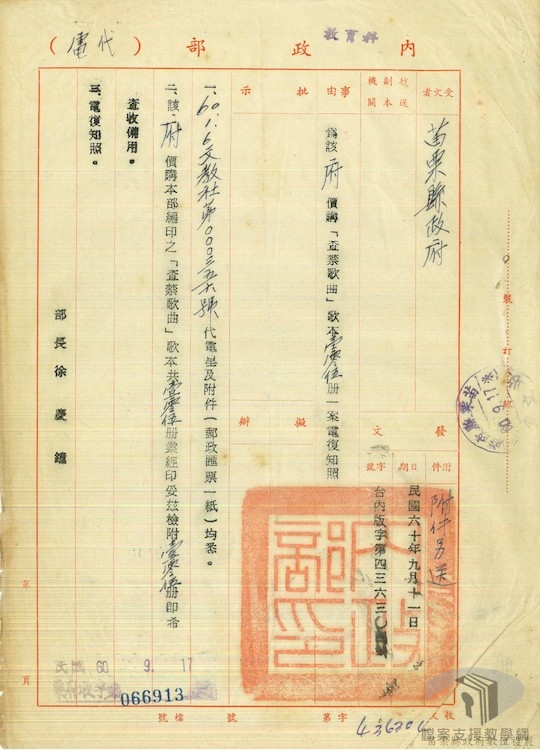 內政部（代電）
教育科
受文者
苗栗縣政府
副本核送機關
事由
為該府價購「查禁歌曲」歌本壹零伍册一案電復知照
批示
擬辦
發文
字號
日期
附件
台內版字第四三六三〇
民國六十年九月十一日
附件另送
一、60.1.6文教社第000三五六號代電呈及附件（郵政匯票一紙）均悉。
二、該府價購本部編印之「查禁歌曲」歌本共壹零伍册業經印妥茲檢附壹零伍册即希
查收備用。
三、電復知照。
部長徐慶鐘
內政部印
裝訂線
年
頁
民國 60 9. 17
066913
收文
字第
號
檔號
436204
檔案支援教學網